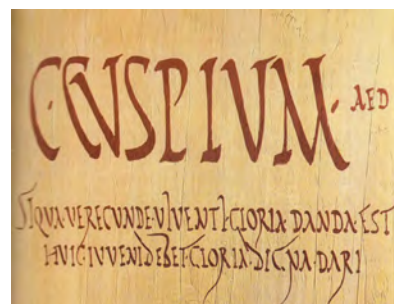 C·CVSPIVM· AED
SIQVA·VERECVNDE·VIVENTI·GLORIA·DANDA·EST
HVIC·IVVENI·DEBET·GLORIA·DIGNA·DARI